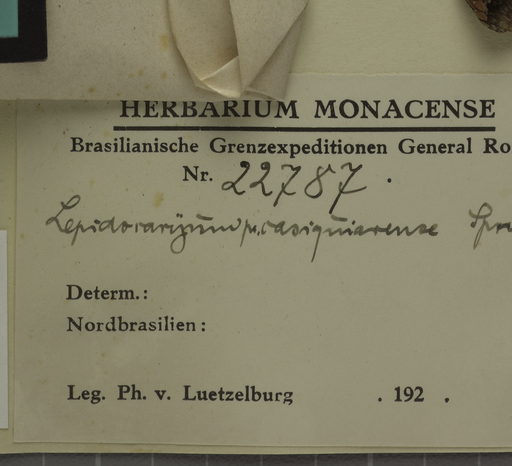 HERBARIUM MONACENSE
Brasilianische Grenzexpeditionen General Ro
Nr. 22787.
Lepidocaryum casiquiarense Spru
Determ.:
Nordbrasilien:
Leg. Ph. v. Luetzelburg . 192 .